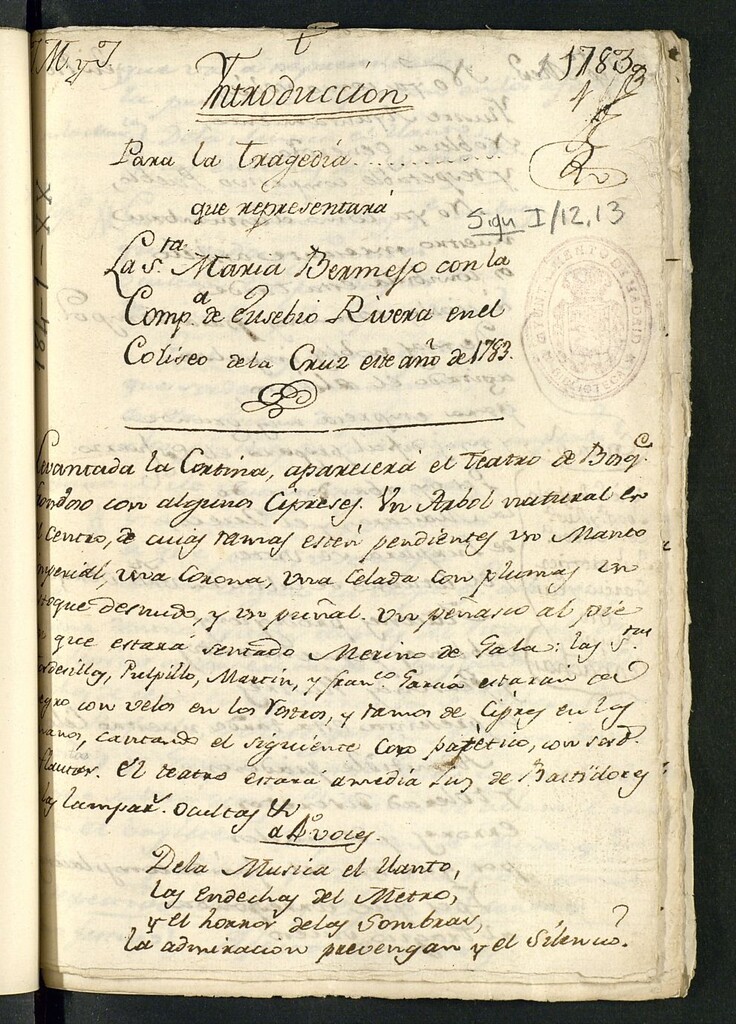 M. y J.
1783
Introduccion
Para la tragedia............
que representará
Sign I/12,13
La S.ta Maria Bermejo con la
Comp.a de Eusebio Rivera en el
Coliseo de la Cruz este año de 1783.
BIBLIOTECA
Levantada la Cortina, aparecerá el teatro de Bosq.e
con algunos Cipreses. Un Arbol natural en
el centro, de cuias ramas estén pendientes un Manto
imperial, una Corona, una Celada con plumas, un
estoque desnudo, y un puñal. Un peñasco al pie
en que estará sentado Merino de Gala: las S.tas
Tordesillas, Pulpillo, Martin, y Fran.co Garcia estarán de
negro con velos en los rostros, y ramos de Cipres en las
manos, cantando el siguiente Coro patético, con sord.s
flautas. El teatro estará a media Luz de Bastidores:
las lampar.s ocultas
a 4.o voces.
De la Musica el llanto,
las endechas del Metro,
y el horror de las Sombras,
la admiracion prevengan y el Silencio.